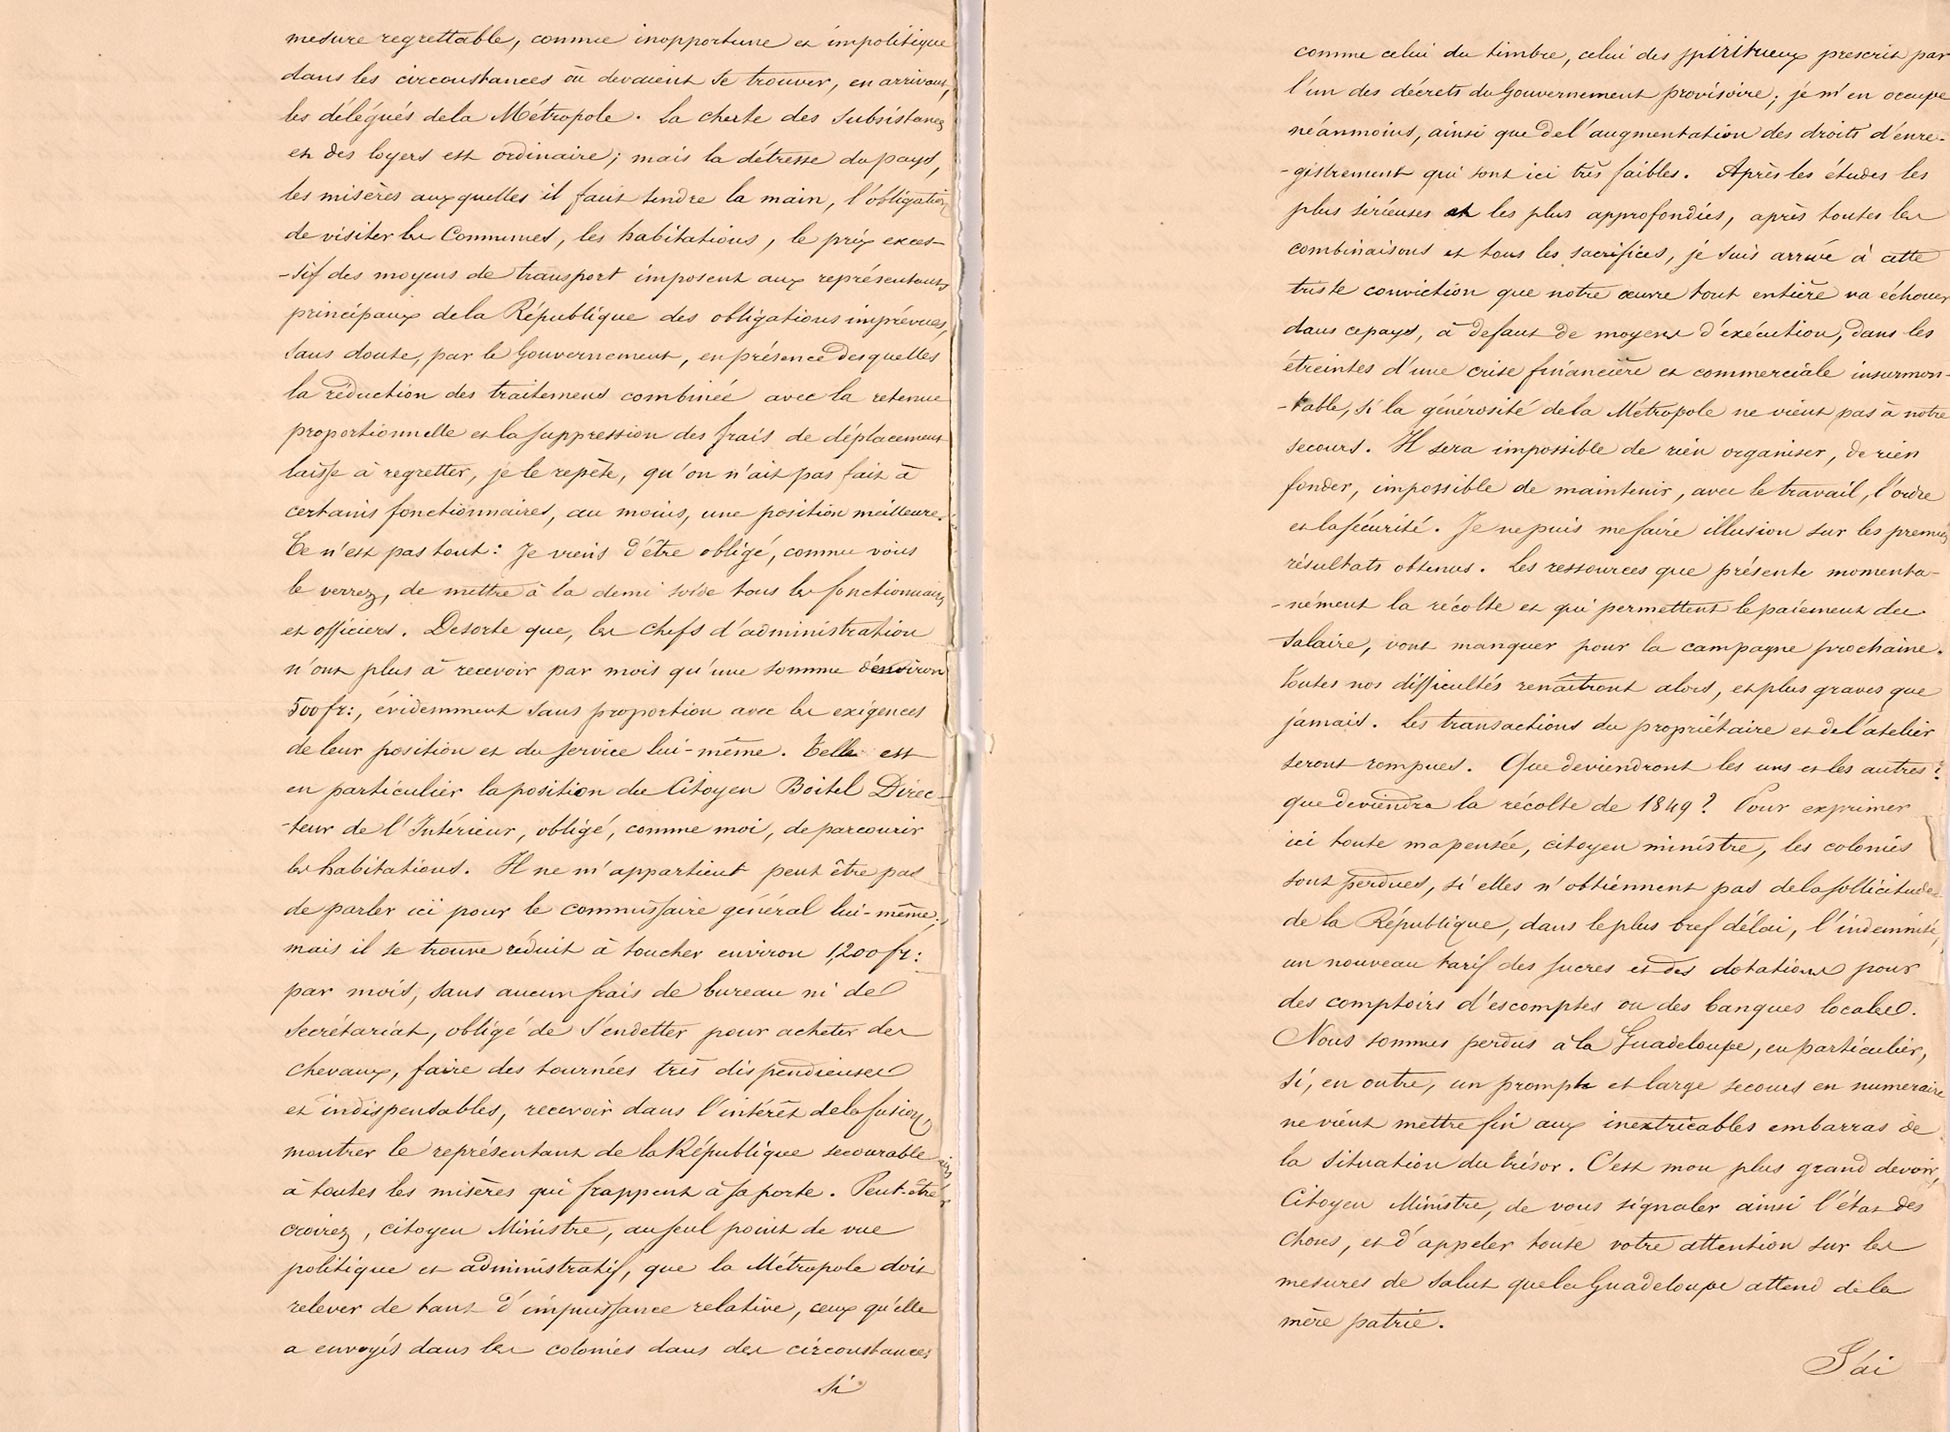 mesure regrettable, comme inopportune et impolitique
dans les circonstances où devaient se trouver, en arrivant,
les délégués de la Métropole. La cherte des subsistances
et des loyers est ordinaire; mais la détresse du pays,
les misères auxquelles il faut tendre la main, l'obligation
de visiter les Communes, les habitations, le prix exces-
-sif des moyens de transport imposent aux représentants
principaux de la République des obligations imprévues,
sans doute, par le Gouvernement, en présence desquelles
la réduction des traitemens combinée avec la retenue
proportionnelle et la suppression des frais de déplacement
laisse à regretter, je le repète, qu'on n'ait pas fait à
certains fonctionnaires, au moins, une position meilleure.
Ce n'est pas tout: Je viens d'être obligé, comme vous
le verrez, de mettre à la demi solde tous les fonctionnaires
et officiers. Desorte que, les chefs d'administration
n'ont plus à recevoir par mois qu'une somme d'environ
500 fr:, évidemment sans proportion avec les exigences
de leur position et du service lui-même. Telle est
en particulier la position du Citoyen Boitel Direc-
-teur de l'Intérieur, obligé, comme moi, de parcourir
les habitations. Il ne m'appartient peut être pas
de parler ici pour le commissaire général lui-même;
mais il se trouve réduit à toucher environ 1,200 fr:
par mois, sans aucun frais de bureau ni de
secrétariat, obligé de s'endetter pour acheter des
chevaux, faire des tournées très dispendieuses
et indispensables, recevoir dans l'intérêt de la fusion,
montrer le représentant de la République secourable
à toutes les misères qui frappent à sa porte. Peut-être
croirez, citoyen Ministre, au seul point de vue
politique et administratif, que la Métropole doit
relever de tant d'impuissance relative, ceux qu'elle
a envoyés dans les colonies dans des circonstances
si
comme celui du timbre, celui des spiritueux prescrit par
l'un des décrets du Gouvernement provisoire; je m'en occupe
néanmoins, ainsi que de l'augmentation des droits d'enre-
-gistrement qui sont ici très faibles. Après les études les
plus sérieuses et les plus approfondies, après toutes les
combinaisons et tous les sacrifices, je suis arrivé à cette
triste conviction que notre œuvre tout entière va échouer
dans ce pays, à defaut de moyens d'exécution, dans les
étreintes d'une crise financière et commerciale insurmon-
-table, si la générosité de la Métropole ne vient pas à notre
secours. Il sera impossible de rien organiser, de rien
fonder, impossible de maintenir, avec le travail, l'ordre
et la sécurité. Je ne puis me faire illusion sur les premiers
résultats obtenus. Les ressources que présente momenta-
-nément la récolte et qui permettent le paiement du
salaire, vont manquer pour la campagne prochaine.
Toutes nos difficultés renaîtront alors, et plus graves que
jamais. Les transactions du propriétaire et de l'atelier
seront rompues. Que deviendront les uns et les autres?
que deviendra la récolte de 1849? Pour exprimer
ici toute ma pensée, citoyen ministre, les colonies
sont perdues, si elles n'obtiennent pas de la sollicitude
de la République, dans le plus bref délai, l'indemnité,
un nouveau tarif des sucres et des dotations pour
des comptoirs d'escomptes ou des banques locales.
Nous sommes perdus à la Guadeloupe, en particulier,
si, en outre, un prompt et large secours en numeraire
ne vient mettre fin aux inextricables embarras de
la situation du trésor. C'est mon plus grand devoir,
Citoyen Ministre, de vous signaler ainsi l'état des
choses, et d'appeler toute votre attention sur les
mesures de salut que la Guadeloupe attend de la
mère patrie.
J'ai